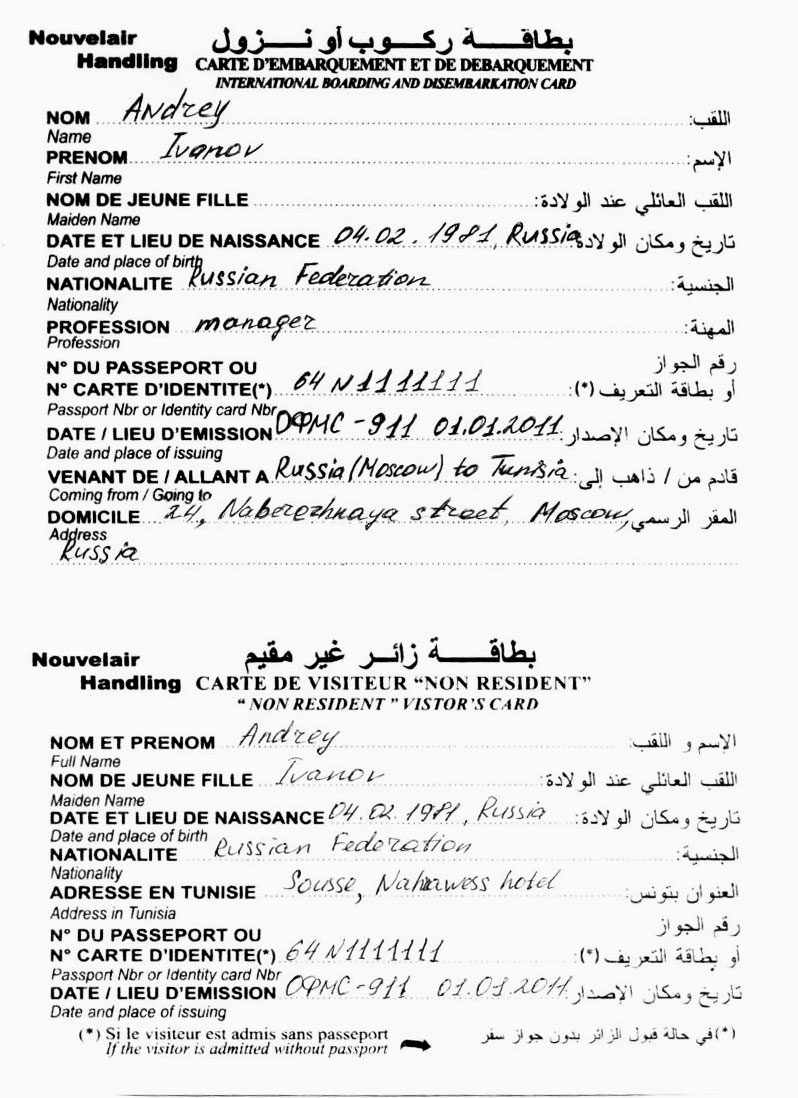 Nouvelair Handling
بطاقة ركوب أو نزول
CARTE D'EMBARQUEMENT ET DE DEBARQUEMENT
INTERNATIONAL BOARDING AND DISEMBARKATION CARD
NOM Andrey اللقب:
Name
PRENOM Ivanov الإسم:
First Name
NOM DE JEUNE FILLE اللقب العائلي عند الولادة:
Maiden Name
DATE ET LIEU DE NAISSANCE 04.02.1981, Russia تاريخ ومكان الولادة
Date and place of birth
NATIONALITE Russian Federation الجنسية:
Nationality
PROFESSION manager المهنة:
Profession
N° DU PASSEPORT OU رقم الجواز
N° CARTE D'IDENTITE(*) 64 N1111111 أو بطاقة التعريف (*):
Passport Nbr or Identity card Nbr
DATE / LIEU D'EMISSION ОФМС-911 01.01.2011 تاريخ ومكان الإصدار
Date and place of issuing
VENANT DE / ALLANT A Russia (Moscow) to Tunisia قادم من / ذاهب إلى:
Coming from / Going to
DOMICILE 24, Naberezhnaya street, Moscow, المقر الرسمي
Address
Russia
Nouvelair Handling
بطاقة زائر غير مقيم
CARTE DE VISITEUR “NON RESIDENT”
“ NON RESIDENT ” VISTOR'S CARD
NOM ET PRENOM Andrey الإسم و اللقب:
Full Name
NOM DE JEUNE FILLE Ivanov اللقب العائلي عند الولادة:
Maiden Name
DATE ET LIEU DE NAISSANCE 04.02.1981, Russia تاريخ ومكان الولادة:
Date and place of birth
NATIONALITE Russian Federation الجنسية:
Nationality
ADRESSE EN TUNISIE Sousse, hotel العنوان بتونس:
Address in Tunisia
N° DU PASSEPORT OU رقم الجواز
N° CARTE D'IDENTITE(*) 64 N1111111 أو بطاقة التعريف (*):
Passport Nbr or Identity card Nbr
DATE / LIEU D'EMISSION ОФМС-911 01.01.2011 تاريخ ومكان الإصدار
Date and place of issuing
(*) Si le visiteur est admis sans passeport (*) في حالة قبول الزائر بدون جواز سفر
If the visitor is admitted without passport